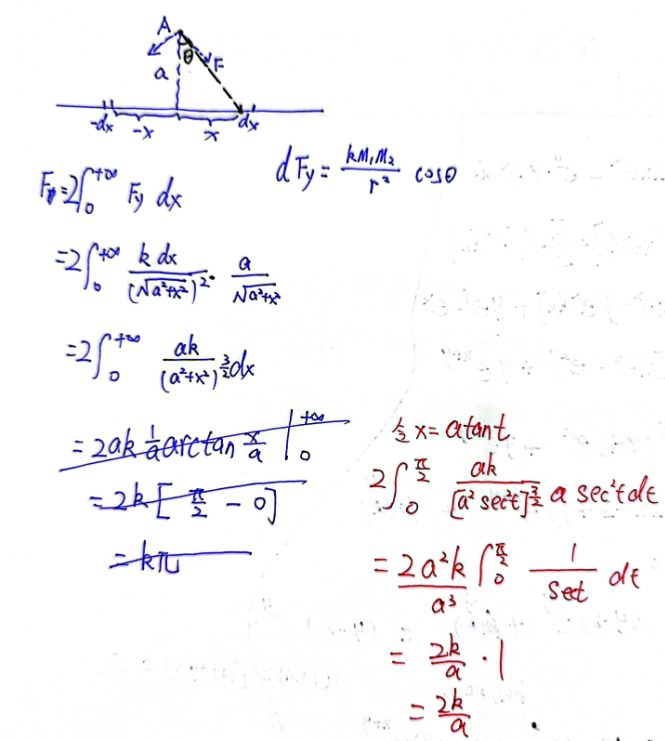 A
θ
F
a
-dx -x x dx
dFy = kM₁M₂/r² cosθ
F = 2∫₀^{+∞} Fy dx
= 2∫₀^{+∞} k dx/(√(a²+x²))² · a/√(a²+x²)
= 2∫₀^{+∞} ak/(a²+x²)^{3/2} dx
= 2ak 1/a arctan x/a |₀^{+∞}
= 2k [ π/2 - 0]
= kπ
令 x = atant.
2∫₀^{π/2} ak/[a² sec²t]^{3/2} a sec²t dt
= 2a²k/a³ ∫₀^{π/2} 1/sect dt
= 2k/a · 1
= 2k/a